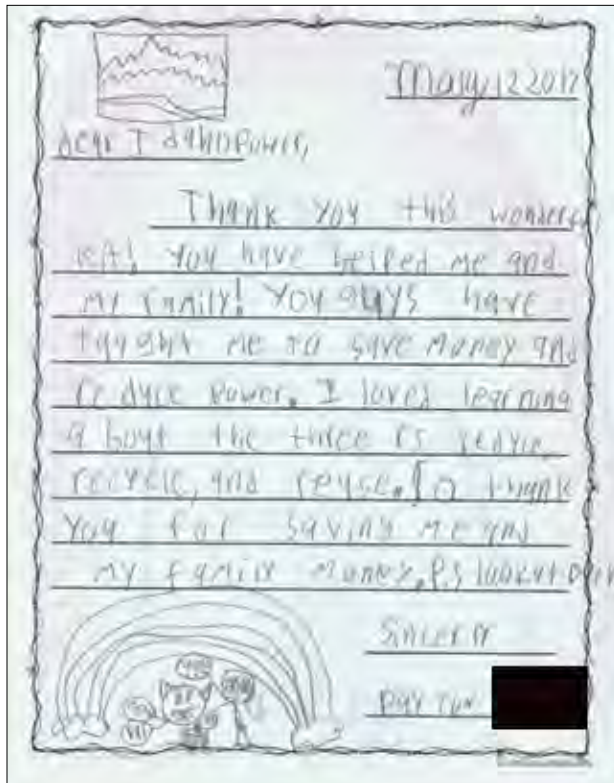 May, 12 2017
Dear Idaho Power,
Thank you this wonderful
kit! you have helped me and
my family! you guys have
taught me to save money and
reduce power. I loved learning
about the three rs reduce
recycle, and reuse. So thank
you for saving me and
my family money. P.S look at
Sincer
Payton